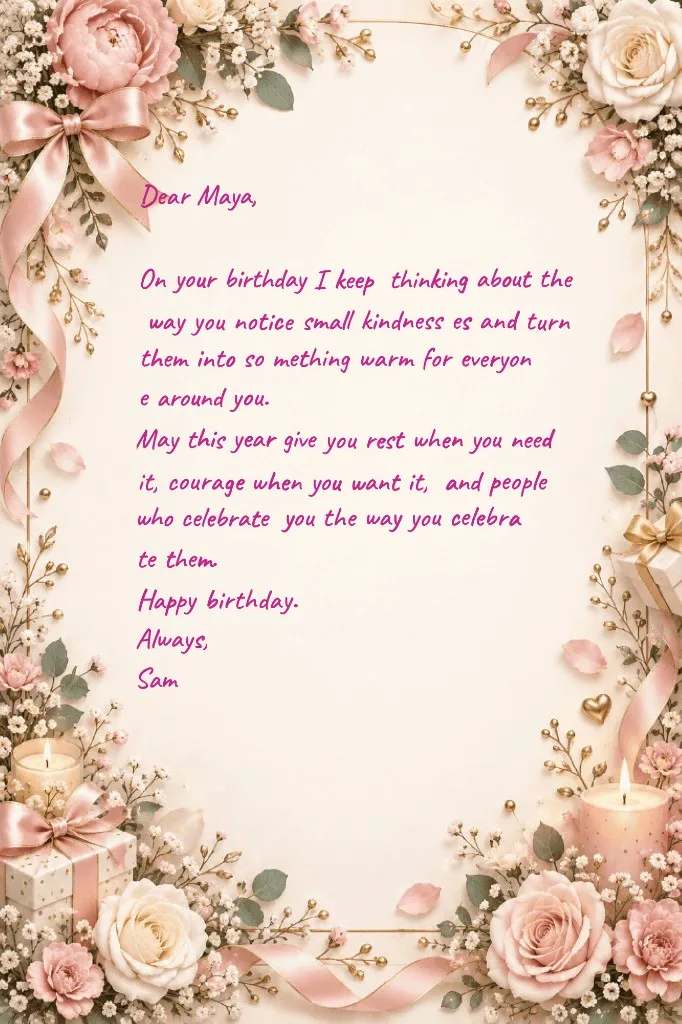 Dear Maya,
On your birthday I keep  thinking about the
way you notice small kindness es and turn
them into so mething warm for everyon
e around you.
May this year give you rest when you need
it, courage when you want it,  and people
who celebrate  you the way you celebra
te them.
Happy birthday.
Always,
Sam